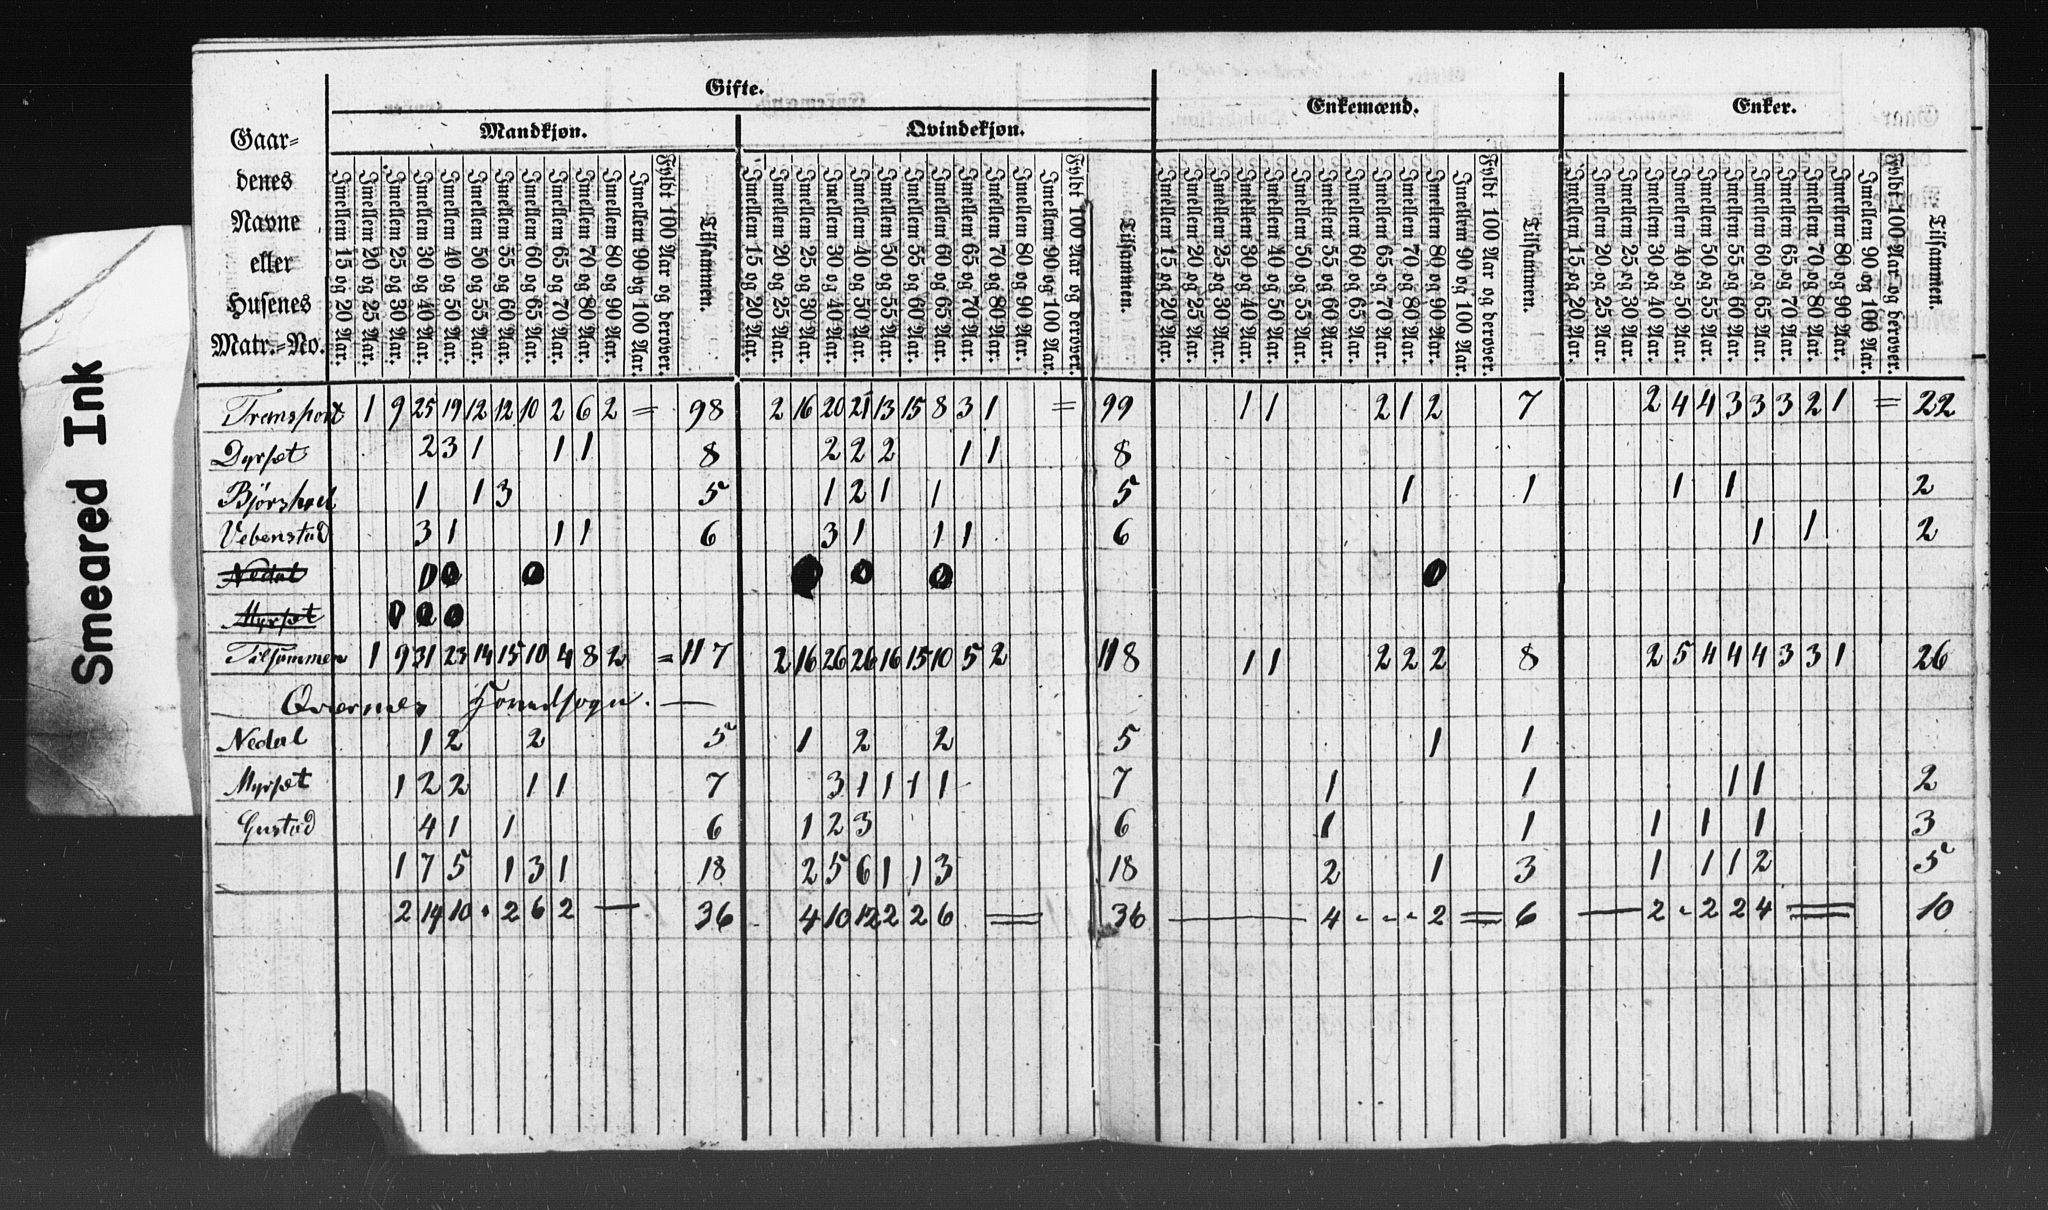 Smeared Ink
Gifte. Enkemænd. Enker.
Mandkjøn. Qvindekjøn.
Gaar-
denes
Navne
eller
Husenes
Matr.-No.
Imellem 15 og 20 Aar.
Imellem 20 og 25 Aar.
Imellem 25 og 30 Aar.
Imellem 30 og 40 Aar.
Imellem 40 og 50 Aar.
Imellem 50 og 55 Aar.
Imellem 55 og 60 Aar.
Imellem 60 og 65 Aar.
Imellem 65 og 70 Aar.
Imellem 70 og 80 Aar.
Imellem 80 og 90 Aar.
Imellem 90 og 100 Aar.
Fyldt 100 Aar og derover.
Tilsammen.
Imellem 15 og 20 Aar.
Imellem 20 og 25 Aar.
Imellem 25 og 30 Aar.
Imellem 30 og 40 Aar.
Imellem 40 og 50 Aar.
Imellem 50 og 55 Aar.
Imellem 55 og 60 Aar.
Imellem 60 og 65 Aar.
Imellem 65 og 70 Aar.
Imellem 70 og 80 Aar.
Imellem 80 og 90 Aar.
Imellem 90 og 100 Aar.
Fyldt 100 Aar og derover.
Tilsammen.
Imellem 15 og 20 Aar.
Imellem 20 og 25 Aar.
Imellem 25 og 30 Aar.
Imellem 30 og 40 Aar.
Imellem 40 og 50 Aar.
Imellem 50 og 55 Aar.
Imellem 55 og 60 Aar.
Imellem 60 og 65 Aar.
Imellem 65 og 70 Aar.
Imellem 70 og 80 Aar.
Imellem 80 og 90 Aar.
Imellem 90 og 100 Aar.
Fyldt 100 Aar og derover.
Tilsammen.
Imellem 15 og 20 Aar.
Imellem 20 og 25 Aar.
Imellem 25 og 30 Aar.
Imellem 30 og 40 Aar.
Imellem 40 og 50 Aar.
Imellem 50 og 55 Aar.
Imellem 55 og 60 Aar.
Imellem 60 og 65 Aar.
Imellem 65 og 70 Aar.
Imellem 70 og 80 Aar.
Imellem 80 og 90 Aar.
Imellem 90 og 100 Aar.
Fyldt 100 Aar og derover.
Tilsammen.
Transport 1 9 25 19 12 12 10 2 6 2 = 98 2 16 20 21 13 15 8 3 1 = 99 1 1 2 1 2 7 2 4 4 3 3 3 2 1 = 22
Dyrsæt 2 3 1 1 1 8 2 2 2 1 1 8
1 1 3 5 1 2 1 1 5 1 1 1 1 2
Vebenstad 3 1 1 1 6 3 1 1 1 6 1 1 2
Nedal
Myrsæt
Tilsammen 1 9 31 23 14 15 10 4 8 2 = 117 2 16 26 26 16 15 10 5 2 118 1 1 2 2 2 8 2 5 4 4 4 3 3 1 26
Hovedsogn. —
Nedal 1 2 2 5 1 2 2 5 1 1
Myrsæt 1 2 2 1 1 7 3 1 1 1 1 7 1 1 1 1 2
Gustad 4 1 1 6 1 2 3 6 1 1 1 1 1 3
1 7 5 1 3 1 18 2 5 6 1 1 3 18 2 1 3 1 1 1 2 5
2 14 10 - 2 6 2 — 36 4 10 12 2 2 6 = 36 — 4 - - - 2 = 6 — 2 - 2 2 4 = 10